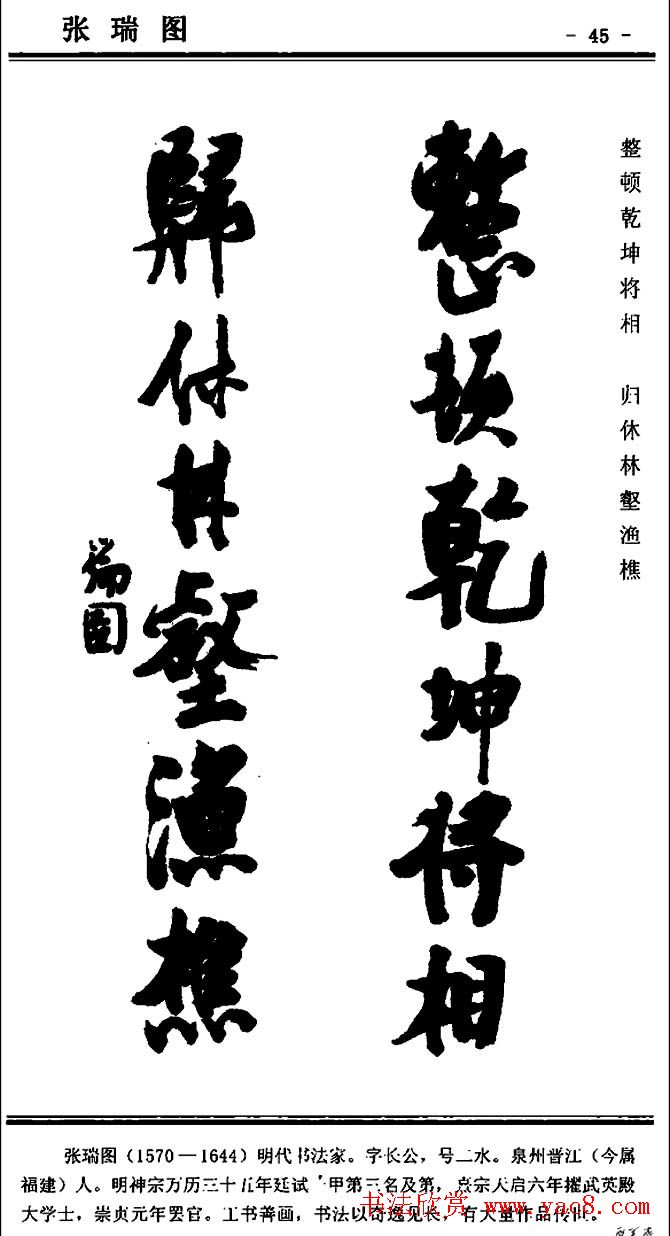 张瑞图
- 45 -
整顿乾坤将相 归休林壑渔樵
整頓乾坤将相
歸休林壑漁樵
瑞圖
张瑞图(1570—1644)明代书法家。字长公,号二水。泉州晋江(今属
福建)人。明神宗万历三十五年廷试一甲第三名及第,熹宗天启六年擢武英殿
大学士,崇贞元年罢官。工书善画,书法以奇逸见长,有大量作品传世。
书法欣赏
www.yac8.com